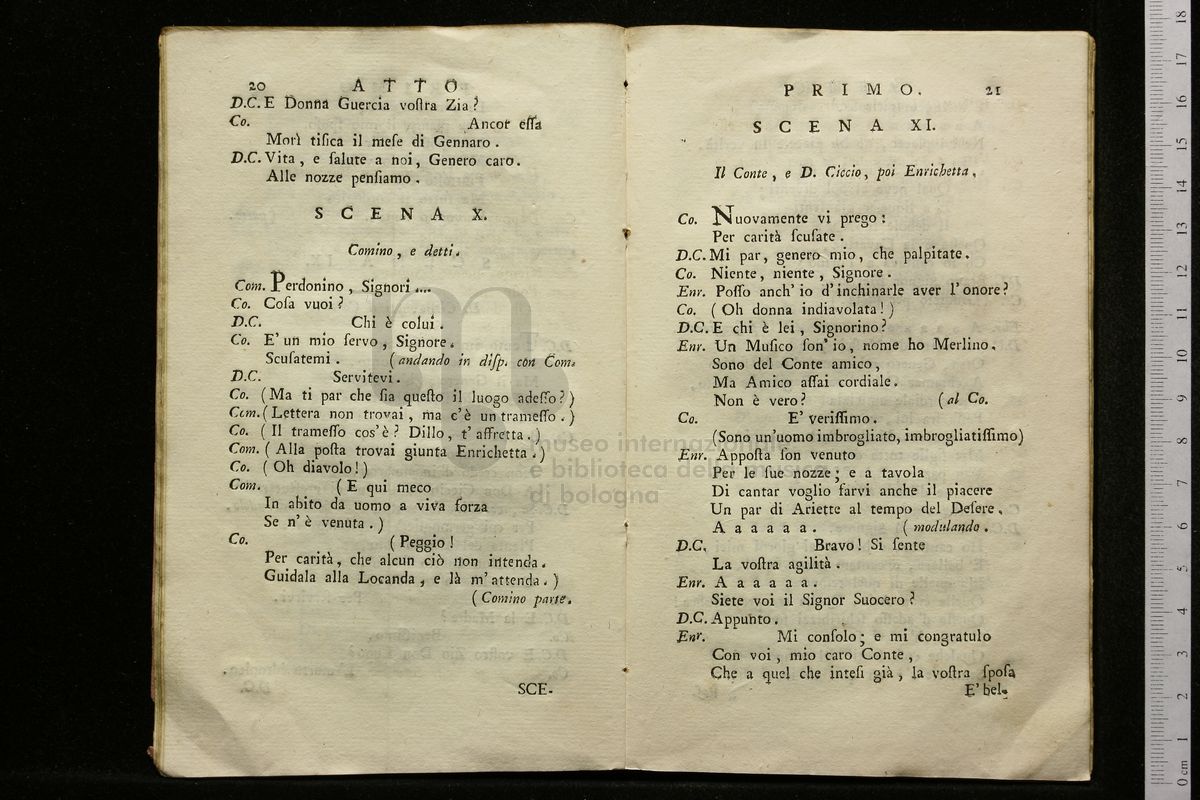 20 ATTO
D.C. E Donna Guercia voſtra Zia?
Co. Ancor eſſa
Morì tiſica il meſe di Gennaro.
D.C. Vita, e ſalute a noi, Genero caro.
Alle nozze penſiamo.
SCENA X.
Comino, e detti.
Com. Perdonino, Signori ....
Co. Coſa vuoi?
D.C. Chi è colui.
Co. E' un mio ſervo, Signore.
Scuſatemi. (andando in diſp. con Com.
D.C. Servitevi.
Co. (Ma ti par che ſia queſto il luogo adeſſo?)
Com. (Lettera non trovai, ma c'è un trameſſo.)
Co. (Il trameſſo cos'è? Dillo, t'affretta.)
Com. (Alla poſta trovai giunta Enrichetta.)
Co. (Oh diavolo!)
Com. (E qui meco
In abito da uomo a viva forza
Se n'è venuta.)
Co. (Peggio!
Per carità, che alcun ciò non intenda.
Guidala alla Locanda, e là m'attenda.)
(Comino parte.
SCE-
PRIMO. 21
SCENA XI.
Il Conte, e D. Ciccio, poi Enrichetta.
Co. Nuovamente vi prego:
Per carità ſcuſate.
D.C. Mi par, genero mio, che palpitate.
Co. Niente, niente, Signore.
Enr. Poſſo anch'io d'inchinarle aver l'onore?
Co. (Oh donna indiavolata!)
D.C. E chi è lei, Signorino?
Enr. Un Muſico ſon'io, nome ho Merlino.
Sono del Conte amico,
Ma Amico aſſai cordiale.
Non è vero? (al Co.
Co. E' veriſſimo.
(Sono un'uomo imbrogliato, imbrogliatiſſimo)
Enr. Appoſta ſon venuto
Per le ſue nozze; e a tavola
Di cantar voglio farvi anche il piacere
Un par di Ariette al tempo del Deſere.
A a a a a a. (modulando.
D.C. Bravo! Si ſente
La voſtra agilità.
Enr. A a a a a a.
Siete voi il Signor Suocero?
D.C. Appunto.
Enr. Mi conſolo; e mi congratulo
Con voi, mio caro Conte,
Che a quel che inteſi già, la voſtra ſpoſa
E' bel-
museo internazionale
e biblioteca della musica
di bologna
0 cm 1 2 3 4 5 6 7 8 9 10 11 12 13 14 15 16 17 18